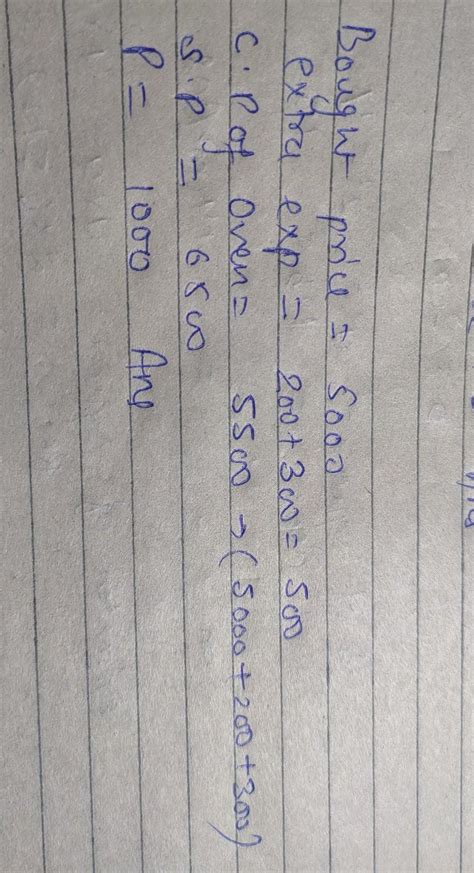 Bought price = 5000
extra exp = 200+300 = 500
C.P of Oven = 5500 → (5000+200+300)
S.P = 6500
P = 1000 Ans